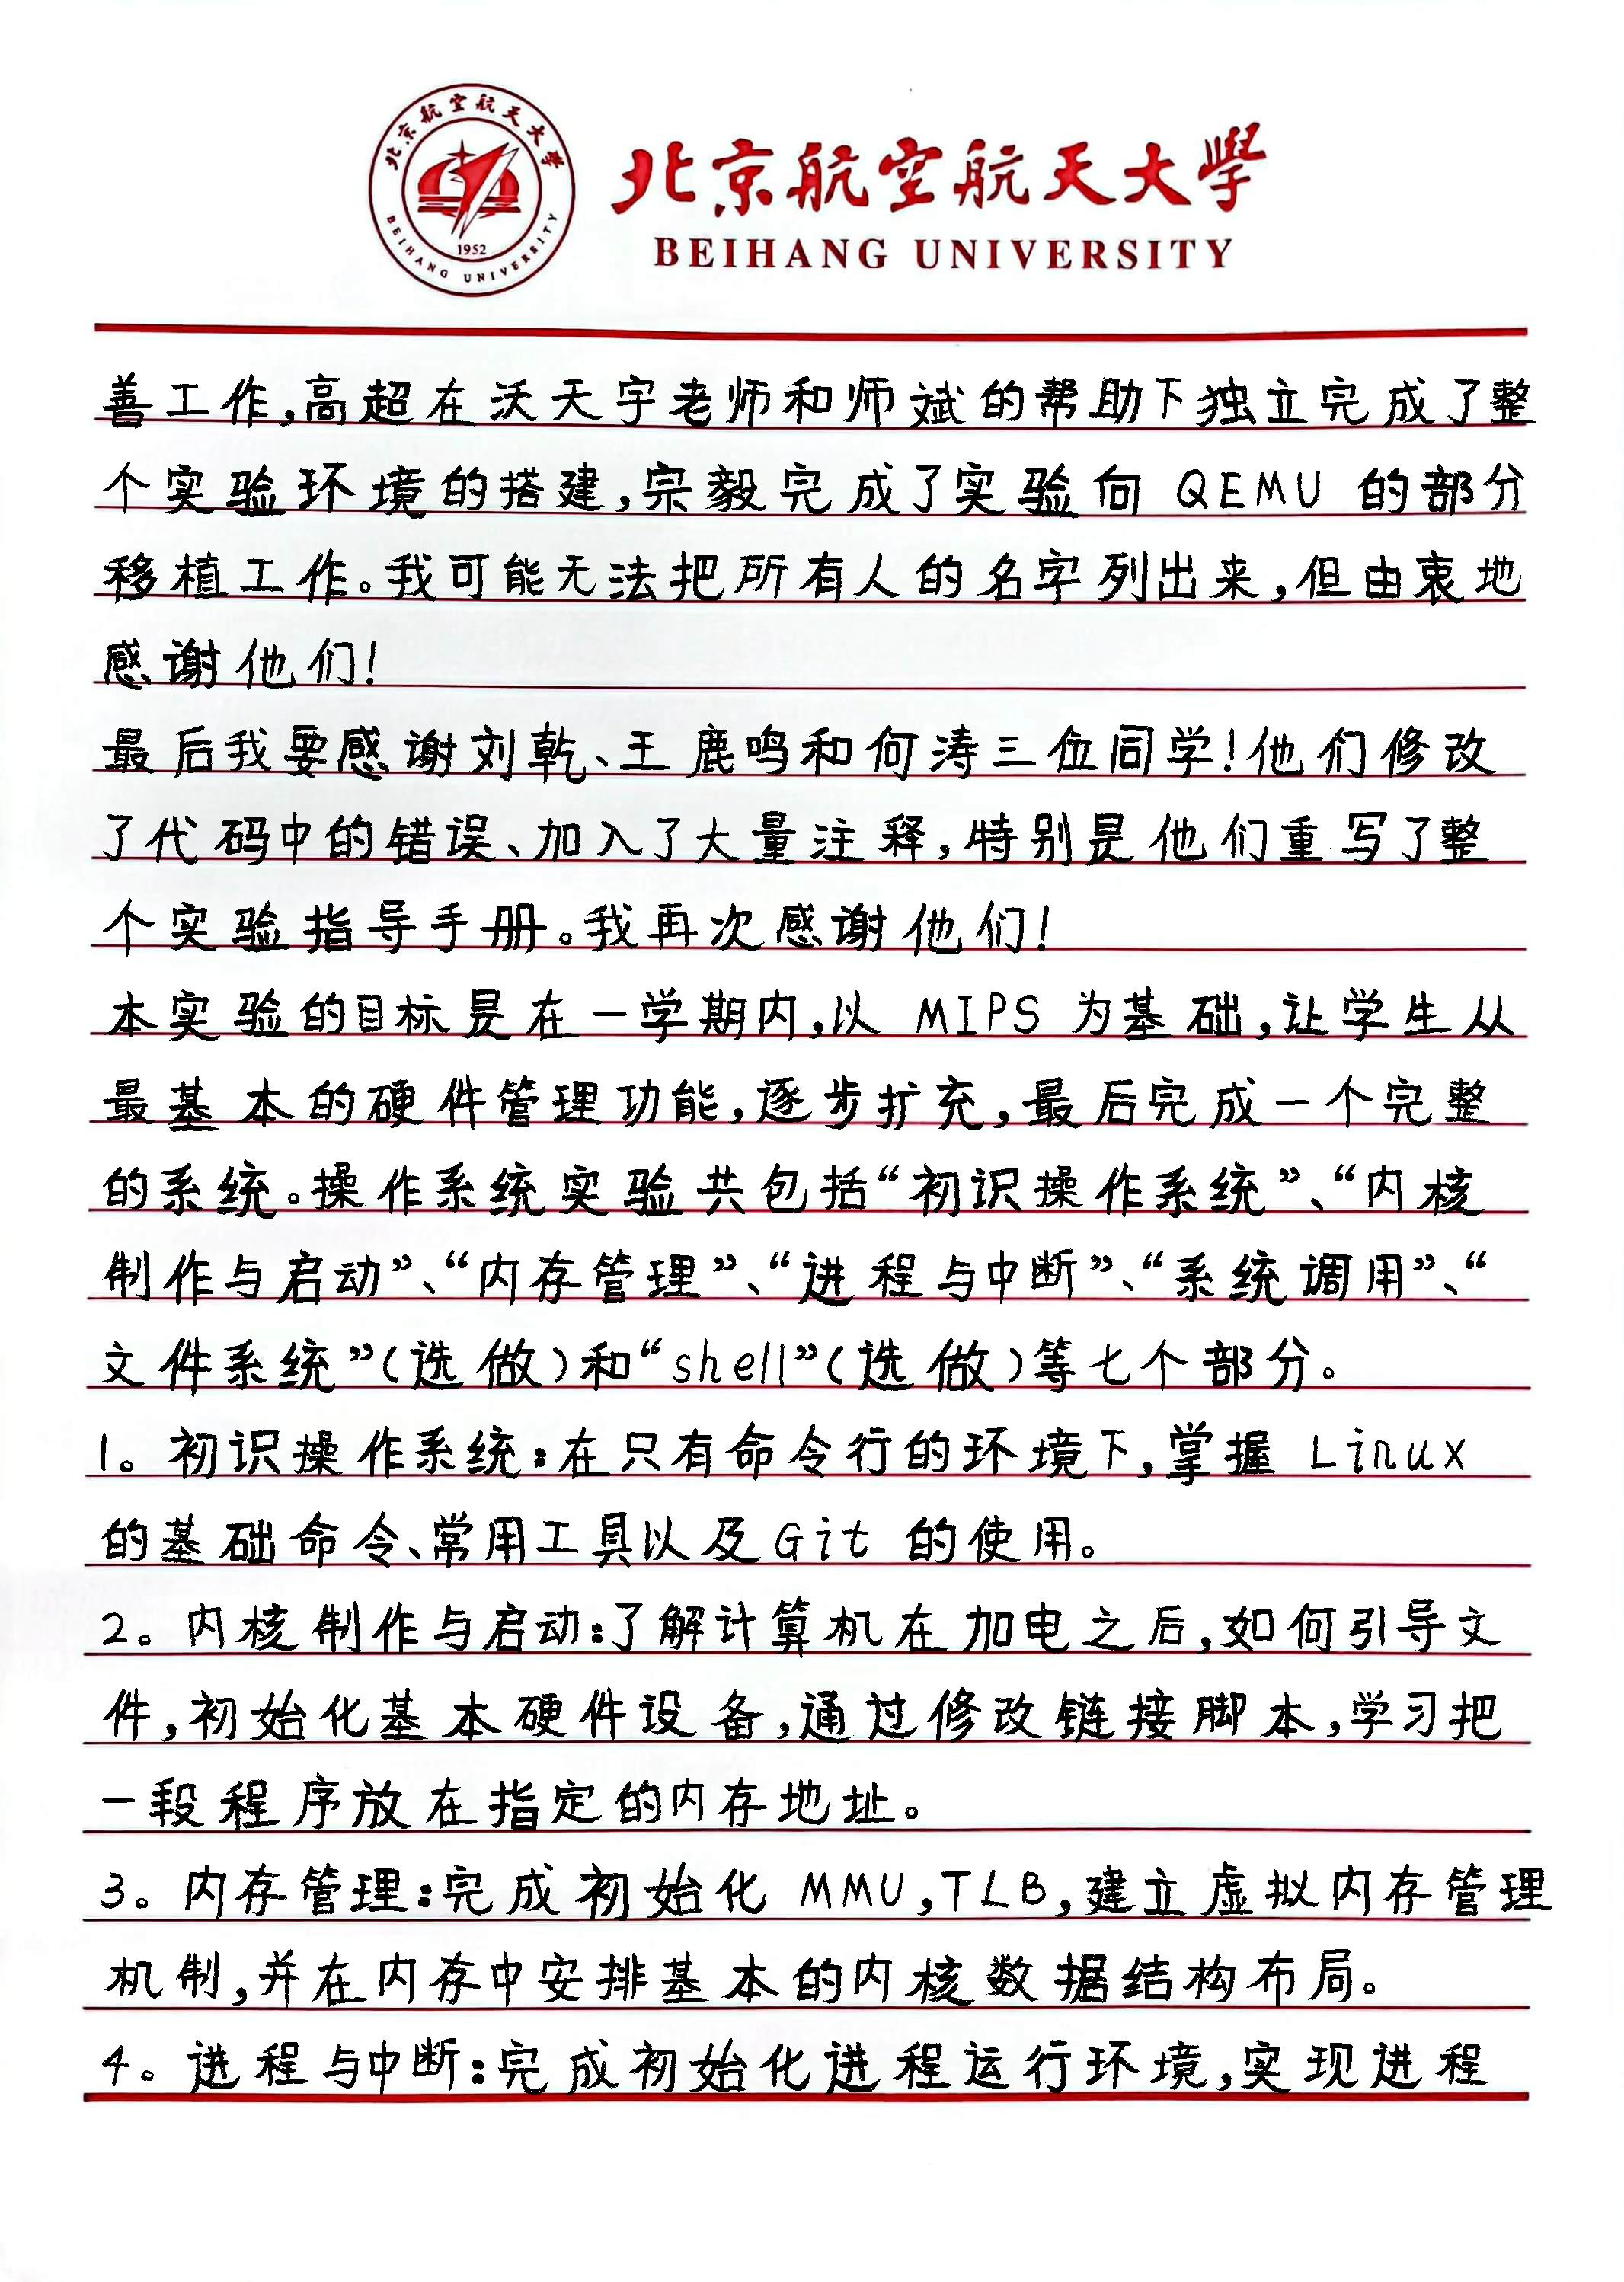 北京航空航天大学
1952
BEIHANG UNIVERSITY
北京航空航天大學
BEIHANG UNIVERSITY
善工作,高超在沃天宇老师和师斌的帮助下独立完成了整
个实验环境的搭建,宗毅完成了实验向 QEMU 的部分
移植工作。我可能无法把所有人的名字列出来,但由衷地
感谢他们!
最后我要感谢刘乾、王鹿鸣和何涛三位同学!他们修改
了代码中的错误、加入了大量注释,特别是他们重写了整
个实验指导手册。我再次感谢他们!
本实验的目标是在一学期内,以 MIPS 为基础,让学生从
最基本的硬件管理功能,逐步扩充,最后完成一个完整
的系统。操作系统实验共包括“初识操作系统”、“内核
制作与启动”、“内存管理”、“进程与中断”、“系统调用”、“
文件系统”(选做)和“shell”(选做)等七个部分。
1。初识操作系统:在只有命令行的环境下,掌握 Linux
的基础命令、常用工具以及Git 的使用。
2。内核制作与启动:了解计算机在加电之后,如何引导文
件,初始化基本硬件设备,通过修改链接脚本,学习把
一段程序放在指定的内存地址。
3。内存管理:完成初始化 MMU,TLB,建立虚拟内存管理
机制,并在内存中安排基本的内核数据结构布局。
4。进程与中断:完成初始化进程运行环境,实现进程